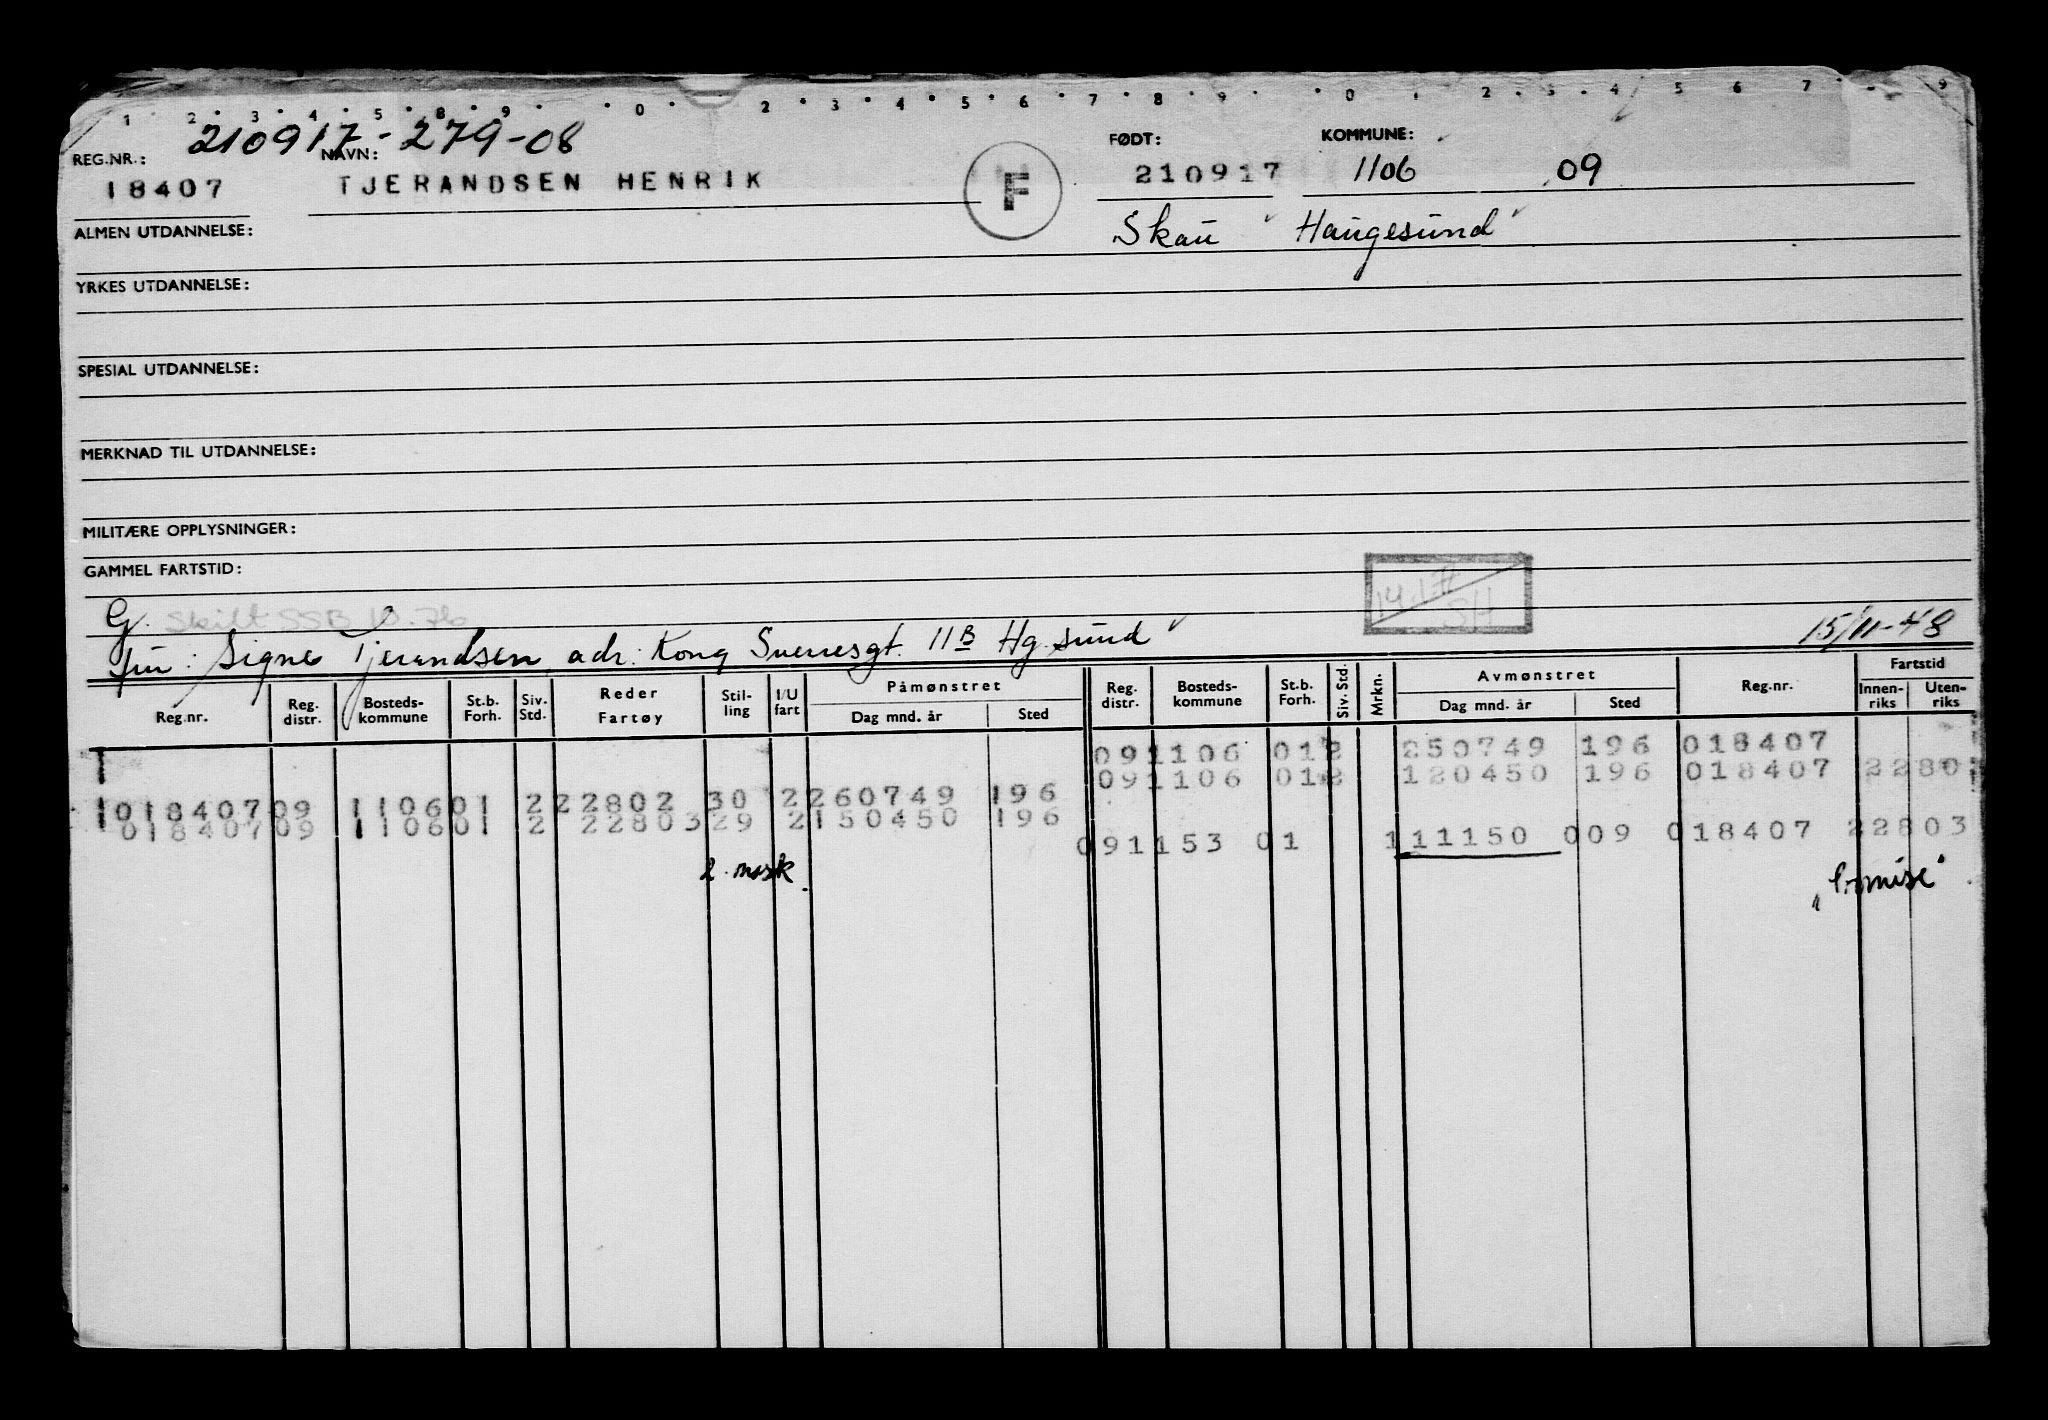 1 2 3 4 5 8 9 0 2 3 4 5 6 7 8 9 0 1 2 3 4 5 6 7 9
210917-279-08
REG.NR.: NAVN: FØDT: KOMMUNE:
18407 TJERANDSEN HENRIK F 210917 1106 09
ALMEN UTDANNELSE: Skaü Haugesund
YRKES UTDANNELSE:
SPESIAL UTDANNELSE:
MERKNAD TIL UTDANNELSE:
MILITÆRE OPPLYSNINGER:
GAMMEL FARTSTID:
G. Skilt SSB 10.76
SH
fru: Signe Tjerandsen adr: Kong Sverresgt. 11B Hg.sund 15/11-48
Reg.nr. Reg. distr. Bosteds-kommune St.b. Forh. Siv. Std. Reder Fartøy Stil-ling I/U fart Påmønstret Dag mnd. år Sted Reg. distr. Bosteds-kommune St.b. Forh. Siv. Std. Mrkn. Avmønstret Dag mnd. år Sted Reg.nr. Fartstid Innen-riks Uten-riks
091106 012 250749 196 018407
091106 012 120450 196 018407 2280
018407 09 110601 2 22802 30 2 260749 196
018407 09 110601 2 22803 29 2 150450 196
091153 01 1 111150 009 018407 22803
2. mask.